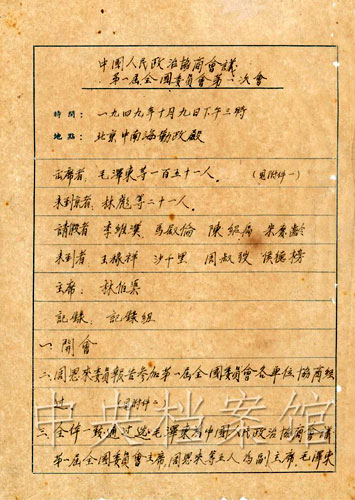 中國人民政治協商會議
第一屆全國委員會第一次會
時間： 一九四九年十月九日下午三時
地點： 北京中南海勤政殿
出席者： 毛澤東等一百五十一人． （見附件一）
未到京者： 林彪等二十一人．
請假者 李維漢 馬敘倫 陳紹禹 朱學範
未到者 王根祥 沙千里 周叔弢 侯德榜
主席： 林伯渠
記錄： 記錄組
一 開會
二 周恩來委員報告參加第一屆全國委員會各單位協商經
過 見附件二
三 全體一致通過選毛澤東為中國人民政治協商會議
第一屆全國委員會主席，周恩來等五人為副主席．毛澤東
中央档案馆